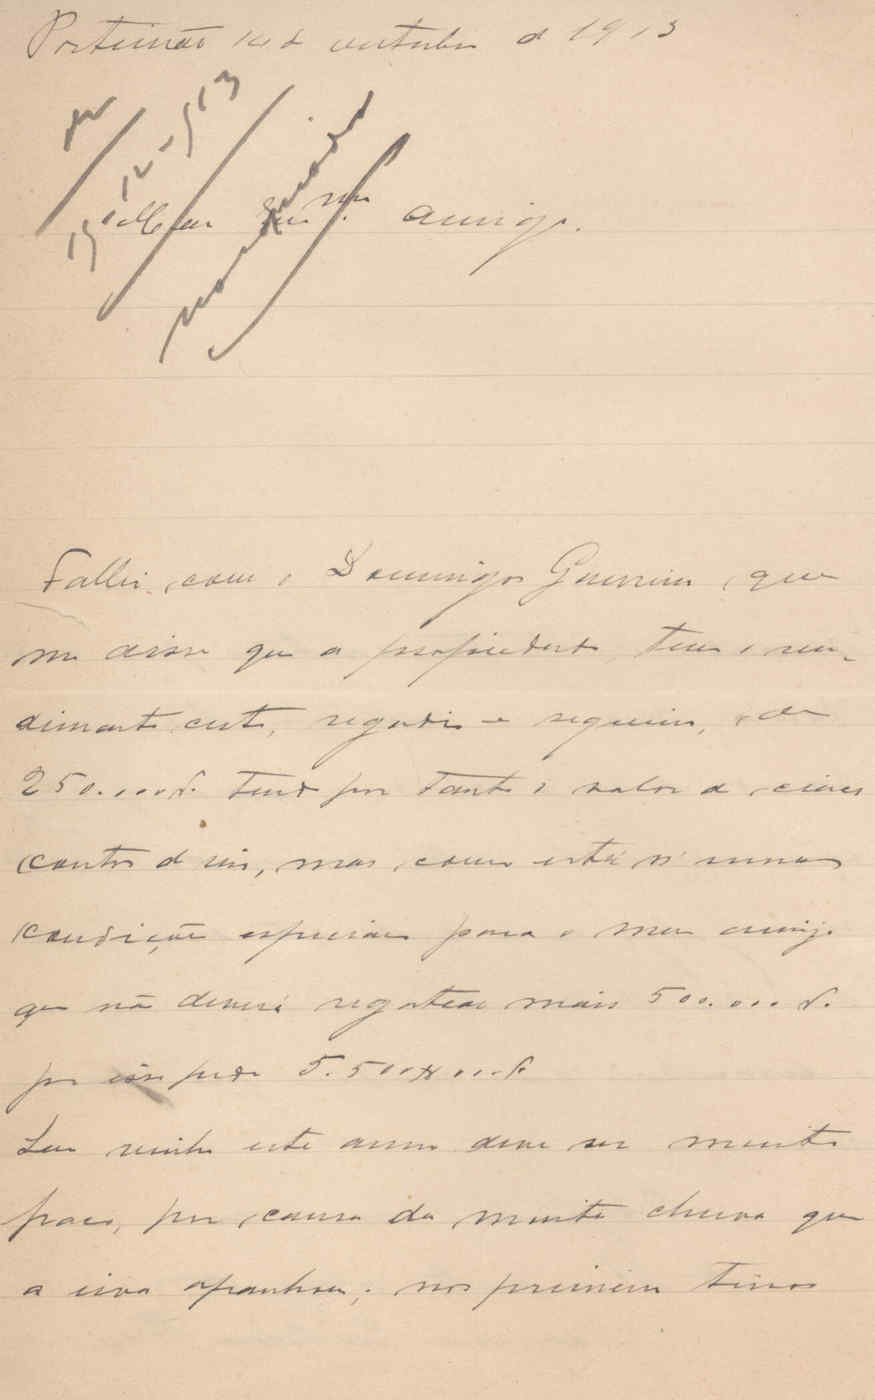 Portimão 14 de outubro de 1913
15-12-913
Meu Exmo. amigo.
Fallei com o Domingos Guerreiro, que
me disse que a propriedade tem o ren-
dimento certo, regadio e sequeiro, de
250.000 r. tendo por tanto o valor de cinco
contos de reis, mas como está n'umas
condições especiaes para o meu amigo
que não deverá regatear mais 500.000 r.
por isso pede 5.500.000 r.
Seu vinho este anno deve ser muito
fraco, por causa da muita chuva que
a uva apanhou; nos primeiros